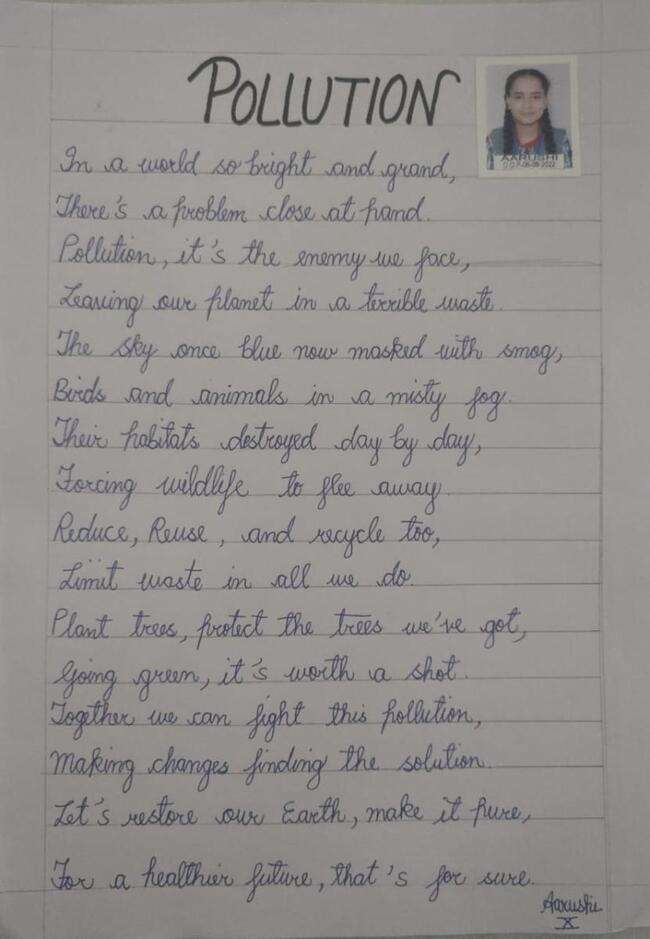 POLLUTION
AARUSHI
D.O.P-06-09-2022
In a world so bright and grand,
There's a problem close at hand.
Pollution, it's the enemy we face,
Leaving our planet in a terrible waste.
The sky once blue now masked with smog,
Birds and animals in a misty fog.
Their habitats destroyed day by day,
Forcing wildlife to flee away.
Reduce, Reuse, and recycle too,
Limit waste in all we do.
Plant trees, protect the trees we've got,
Going green, it's worth a shot.
Together we can fight this pollution,
Making changes finding the solution.
Let's restore our Earth, make it pure,
For a healthier future, that's for sure.
Aarushi
X